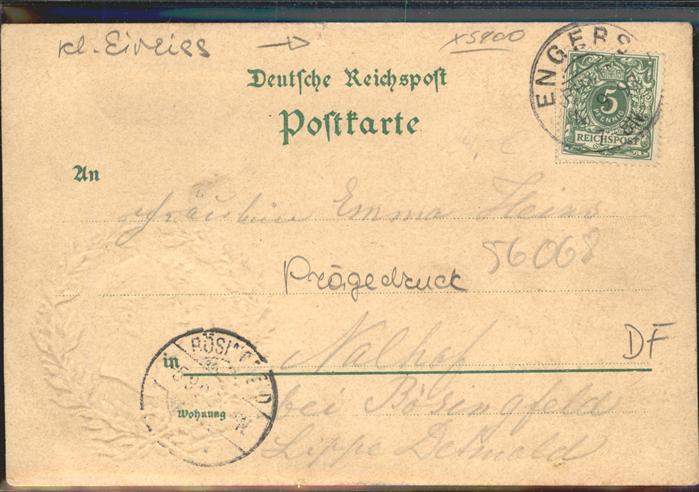 kl. Einriss → x5900
Deutsche Reichspost
Postkarte
ENGERS
5
PFENNIG
REICHSPOST
An
Fräulein Emma Heine
56068
Prägedruck
DF
in Nalhof
BÖSINGFELD
Wohnung
bei Bösingfeld
Lippe Detmold